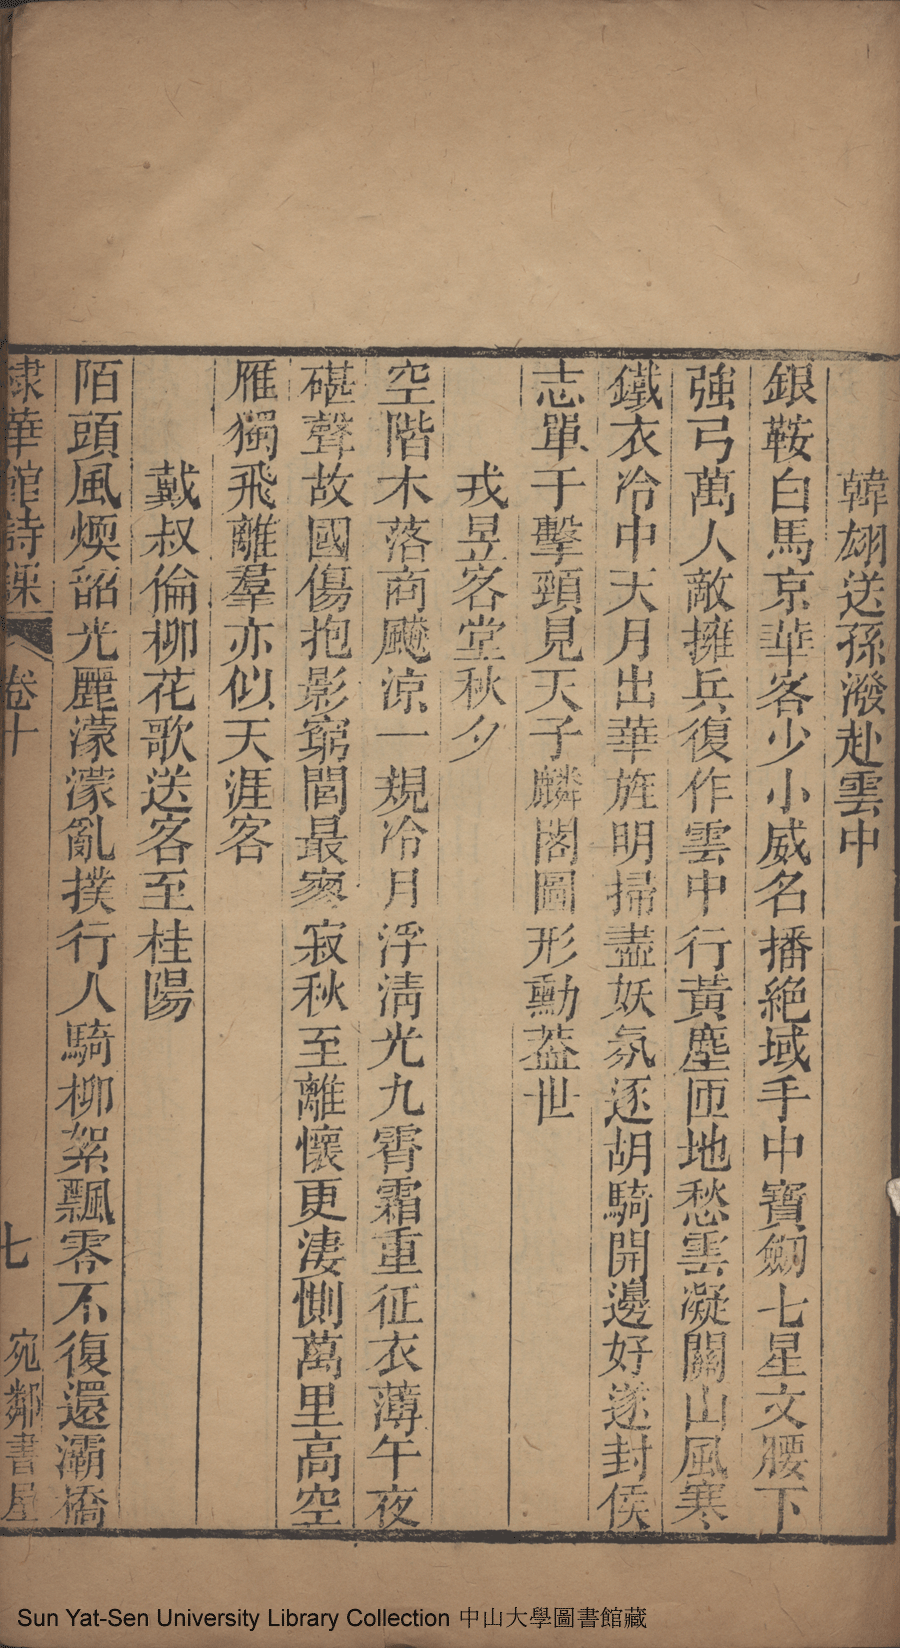 韓翃送孫潑赴雲中
銀鞍白馬京華客少小威名播絶域手中寶劒七星文腰下
強弓萬人敵擁兵復作雲中行黃塵匝地愁雲凝關山風寒
鐵衣冷中天月出華旌明掃盡妖氛逐胡騎開邊好遂封侯
志單于擊頸見天子麟閣圖形勳蓋世
戎昱客堂秋夕
空階木落商飈涼一規冷月浮清光九霄霜重征衣薄午夜
碪聲故國傷抱影窮閻最寥寂秋至離懷更淒惻萬里高空
雁獨飛離羣亦似天涯客
戴叔倫柳花歌送客至桂陽
陌頭風煗韶光麗濛濛亂撲行人騎柳絮飄零不復還灞橋
棣華館詩課 卷十 七 宛鄰書屋
Sun Yat-Sen University Library Collection 中山大學圖書館藏